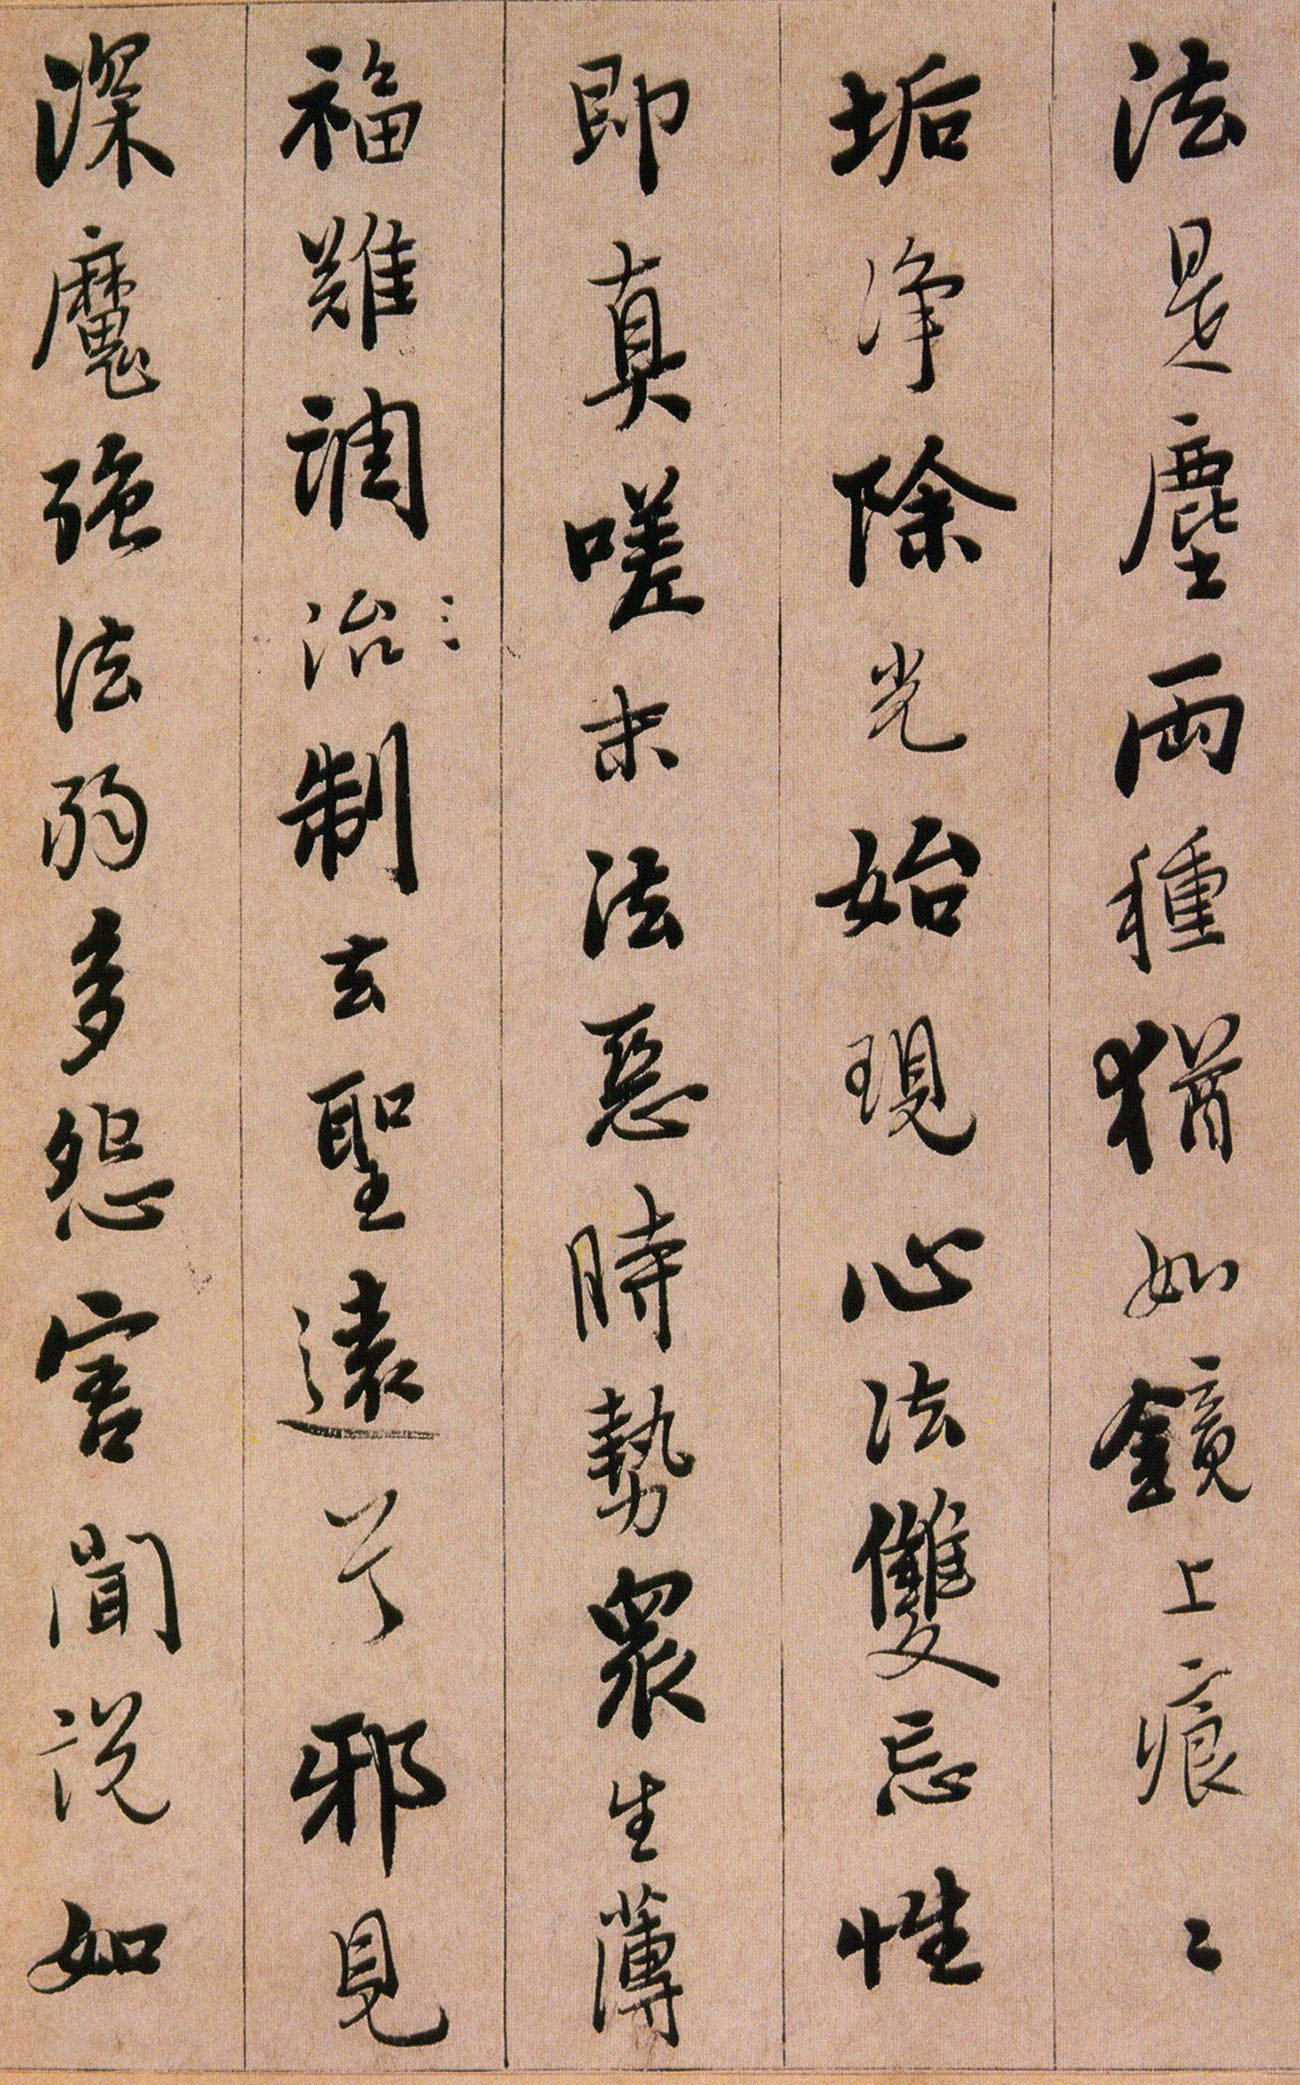 法是塵兩種猶如鏡上痕〻
垢淨除光始現心法雙忘性
即真嗟末法惡時勢眾生薄
福難調治制去聖遠兮邪見
深魔強法弱多怨害聞說如